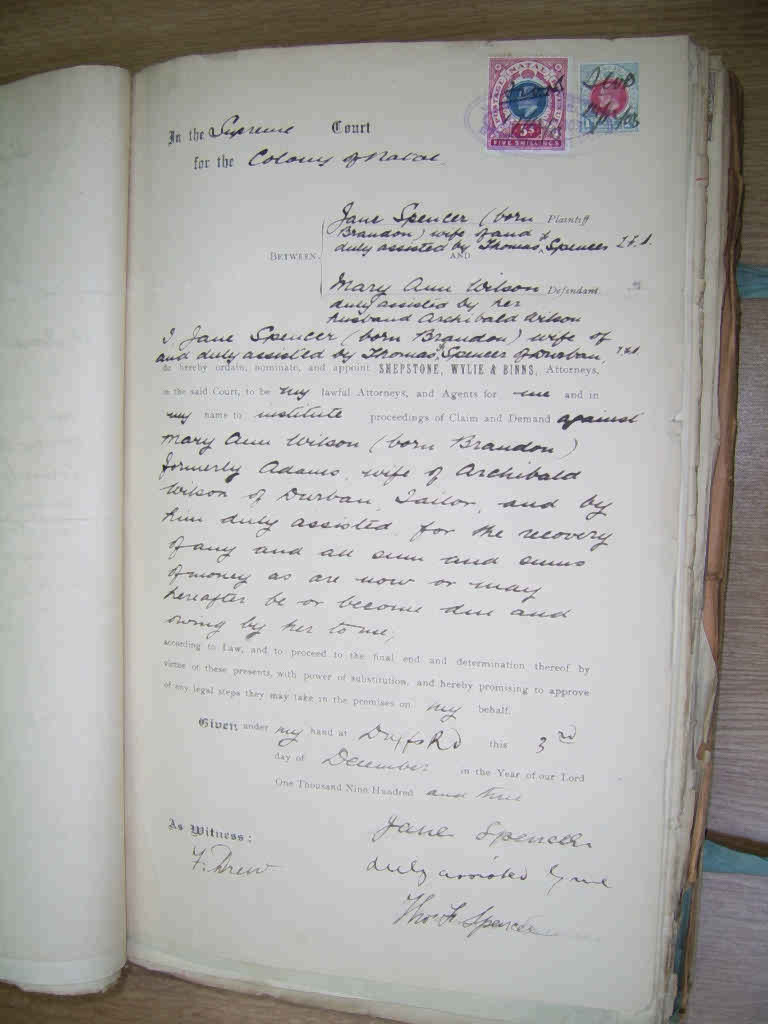 POSTAGE NATAL REVENUE
5s
FIVE SHILLINGS
In the Supreme Court
for the Colony of Natal
Jane Spencer (born Plaintiff
Brandon) wife of and
duly assisted by Thomas F. Spencer
BETWEEN AND
Mary Ann Wilson Defendant.
duly assisted by her
husband Archibald Wilson
I, Jane Spencer (born Brandon) wife of
and duly assisted by Thomas F. Spencer of Durban,
do hereby ordain, nominate, and appoint SHEPSTONE, WYLIE & BINNS, Attorneys,
in the said Court, to be my lawful Attorneys, and Agents for me and in
my name to institute proceedings of Claim and Demand against
Mary Ann Wilson (born Brandon)
formerly Adams, wife of Archibald
Wilson of Durban, Tailor, and by
him duly assisted, for the recovery
of any and all sum and sums
of money as are now or may
hereafter be or become due and
owing by her to me,
according to Law, and to proceed to the final end and determination thereof by
virtue of these presents, with power of substitution, and hereby promising to approve
of any legal steps they may take in the premises on my behalf.
Given under my hand at Duffs Rd this 3rd
day of December in the Year of our Lord
One Thousand Nine Hundred and
As Witness: Jane Spencer
F. Drew duly assisted by me
Thos. F. Spencer